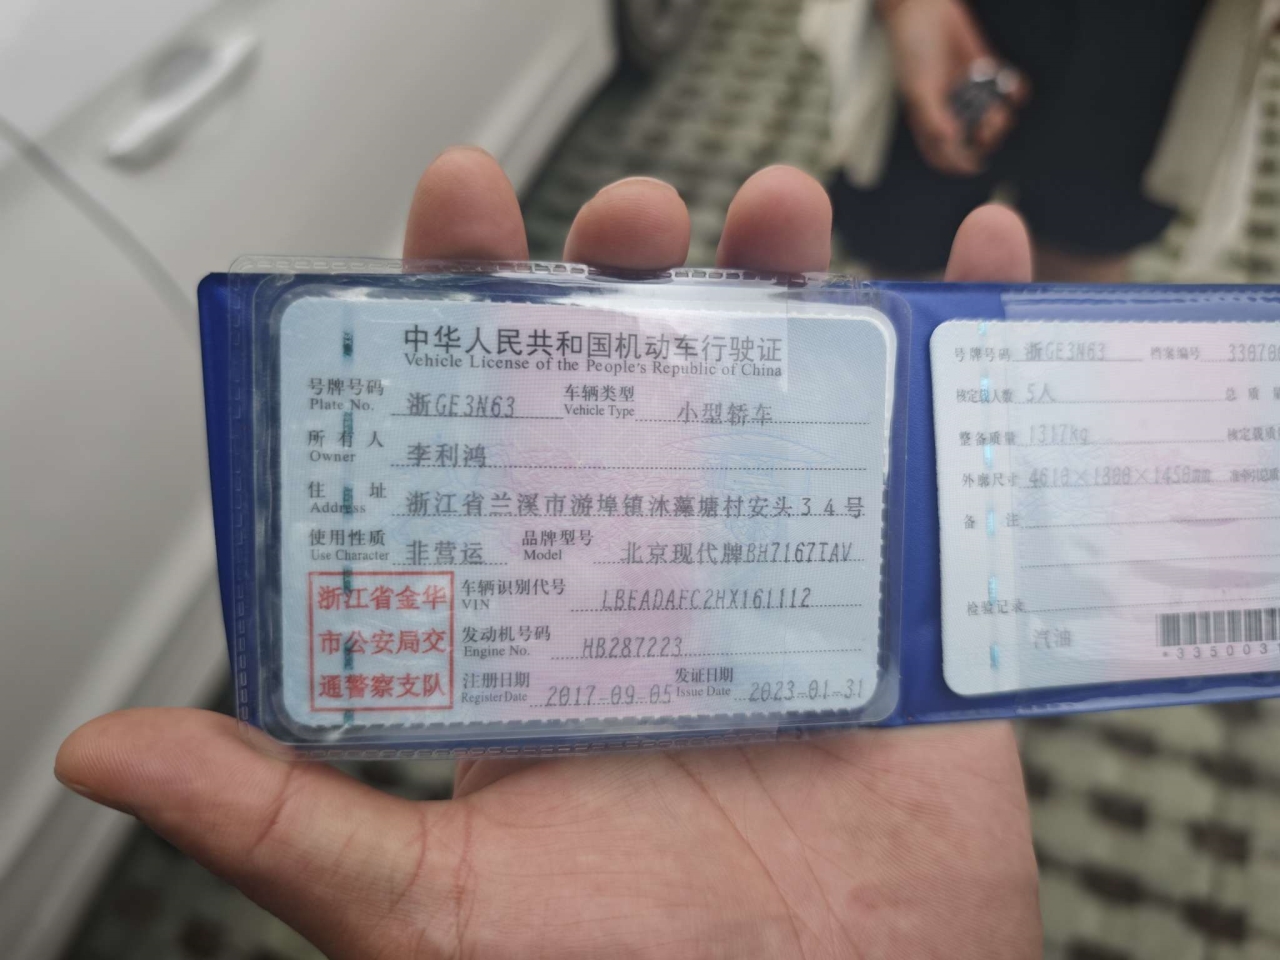 中华人民共和国机动车行驶证
Vehicle License of the People's Republic of China
号牌号码 浙GE3N63 车辆类型 小型轿车
Plate No. Vehicle Type
所有人 李利鸿
Owner
住址 浙江省兰溪市游埠镇沐藻塘村安头34号
Address
使用性质 非营运 品牌型号 北京现代牌BH7167TAV
Use Character Model
浙江省金华
市公安局交
通警察支队
车辆识别代号 LBEADAFC2HX161112
VIN
发动机号码 HB287223
Engine No.
注册日期 2017-09-05 发证日期 2023-01-31
Register Date Issue Date
号牌号码 浙GE3N63 档案编号
核定载人数 5人 总质
整备质量 1317kg 核定载质
外廓尺寸
备注
检验记录
汽油